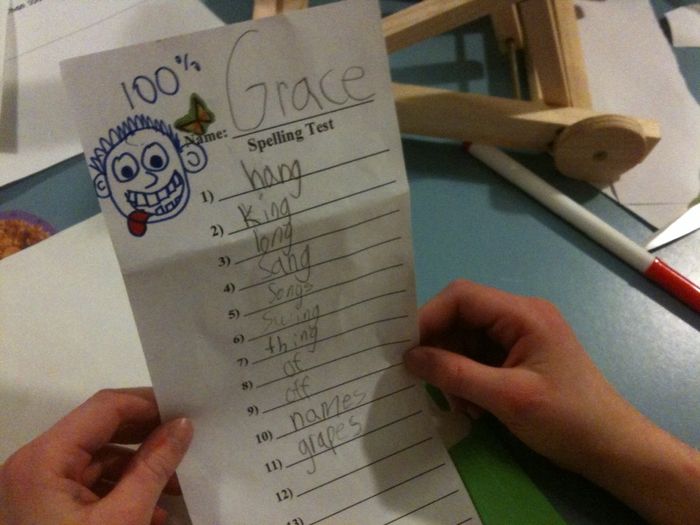 100%
Grace
Name:
Spelling Test
1) hang
2) king
3) long
4) sang
5) songs
6) swing
7) thing
8) of
9) off
10) names
11) grapes
12)
13)